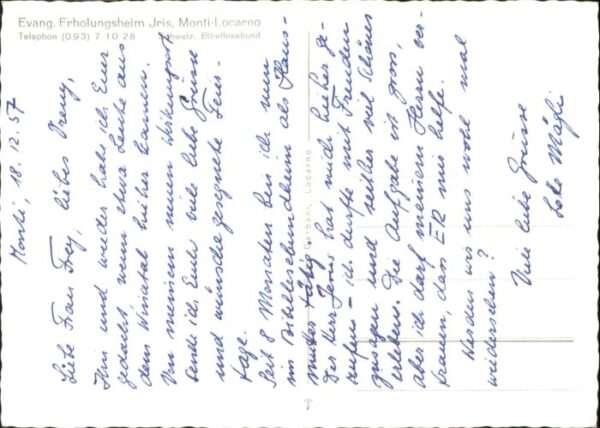 Evang. Erholungsheim Jris, Monti-Locarno
Telephon (093) 7 10 28 Schweiz. Bibellesebund
Monti, 18.12.57
Liebe Frau Frey, liebes Vreny,
Hin und wieder habe ich Euer
gedacht wenn etwa Leute aus
dem Winatal hierher kamen.
Von meinem neuen Wirkungsort
sende ich Euch viele liebe Grüsse
und wünsche gesegnete Feier-
tage.
Seit 8 Monaten bin ich nun
im Bibellesebundheim als Haus-
mutter tätig.
Der Herr Jesus hat mich hierher ge-
rufen – ich durfte mit Freuden
zusagen und seither viel Schönes
erleben. Die Aufgabe ist gross,
aber ich darf meinem Herrn ver-
trauen, dass ER mir helfe.
Werden wir uns wohl mal
wiedersehen?
Viele liebe Grüsse
Lotte Mägli
Locarno